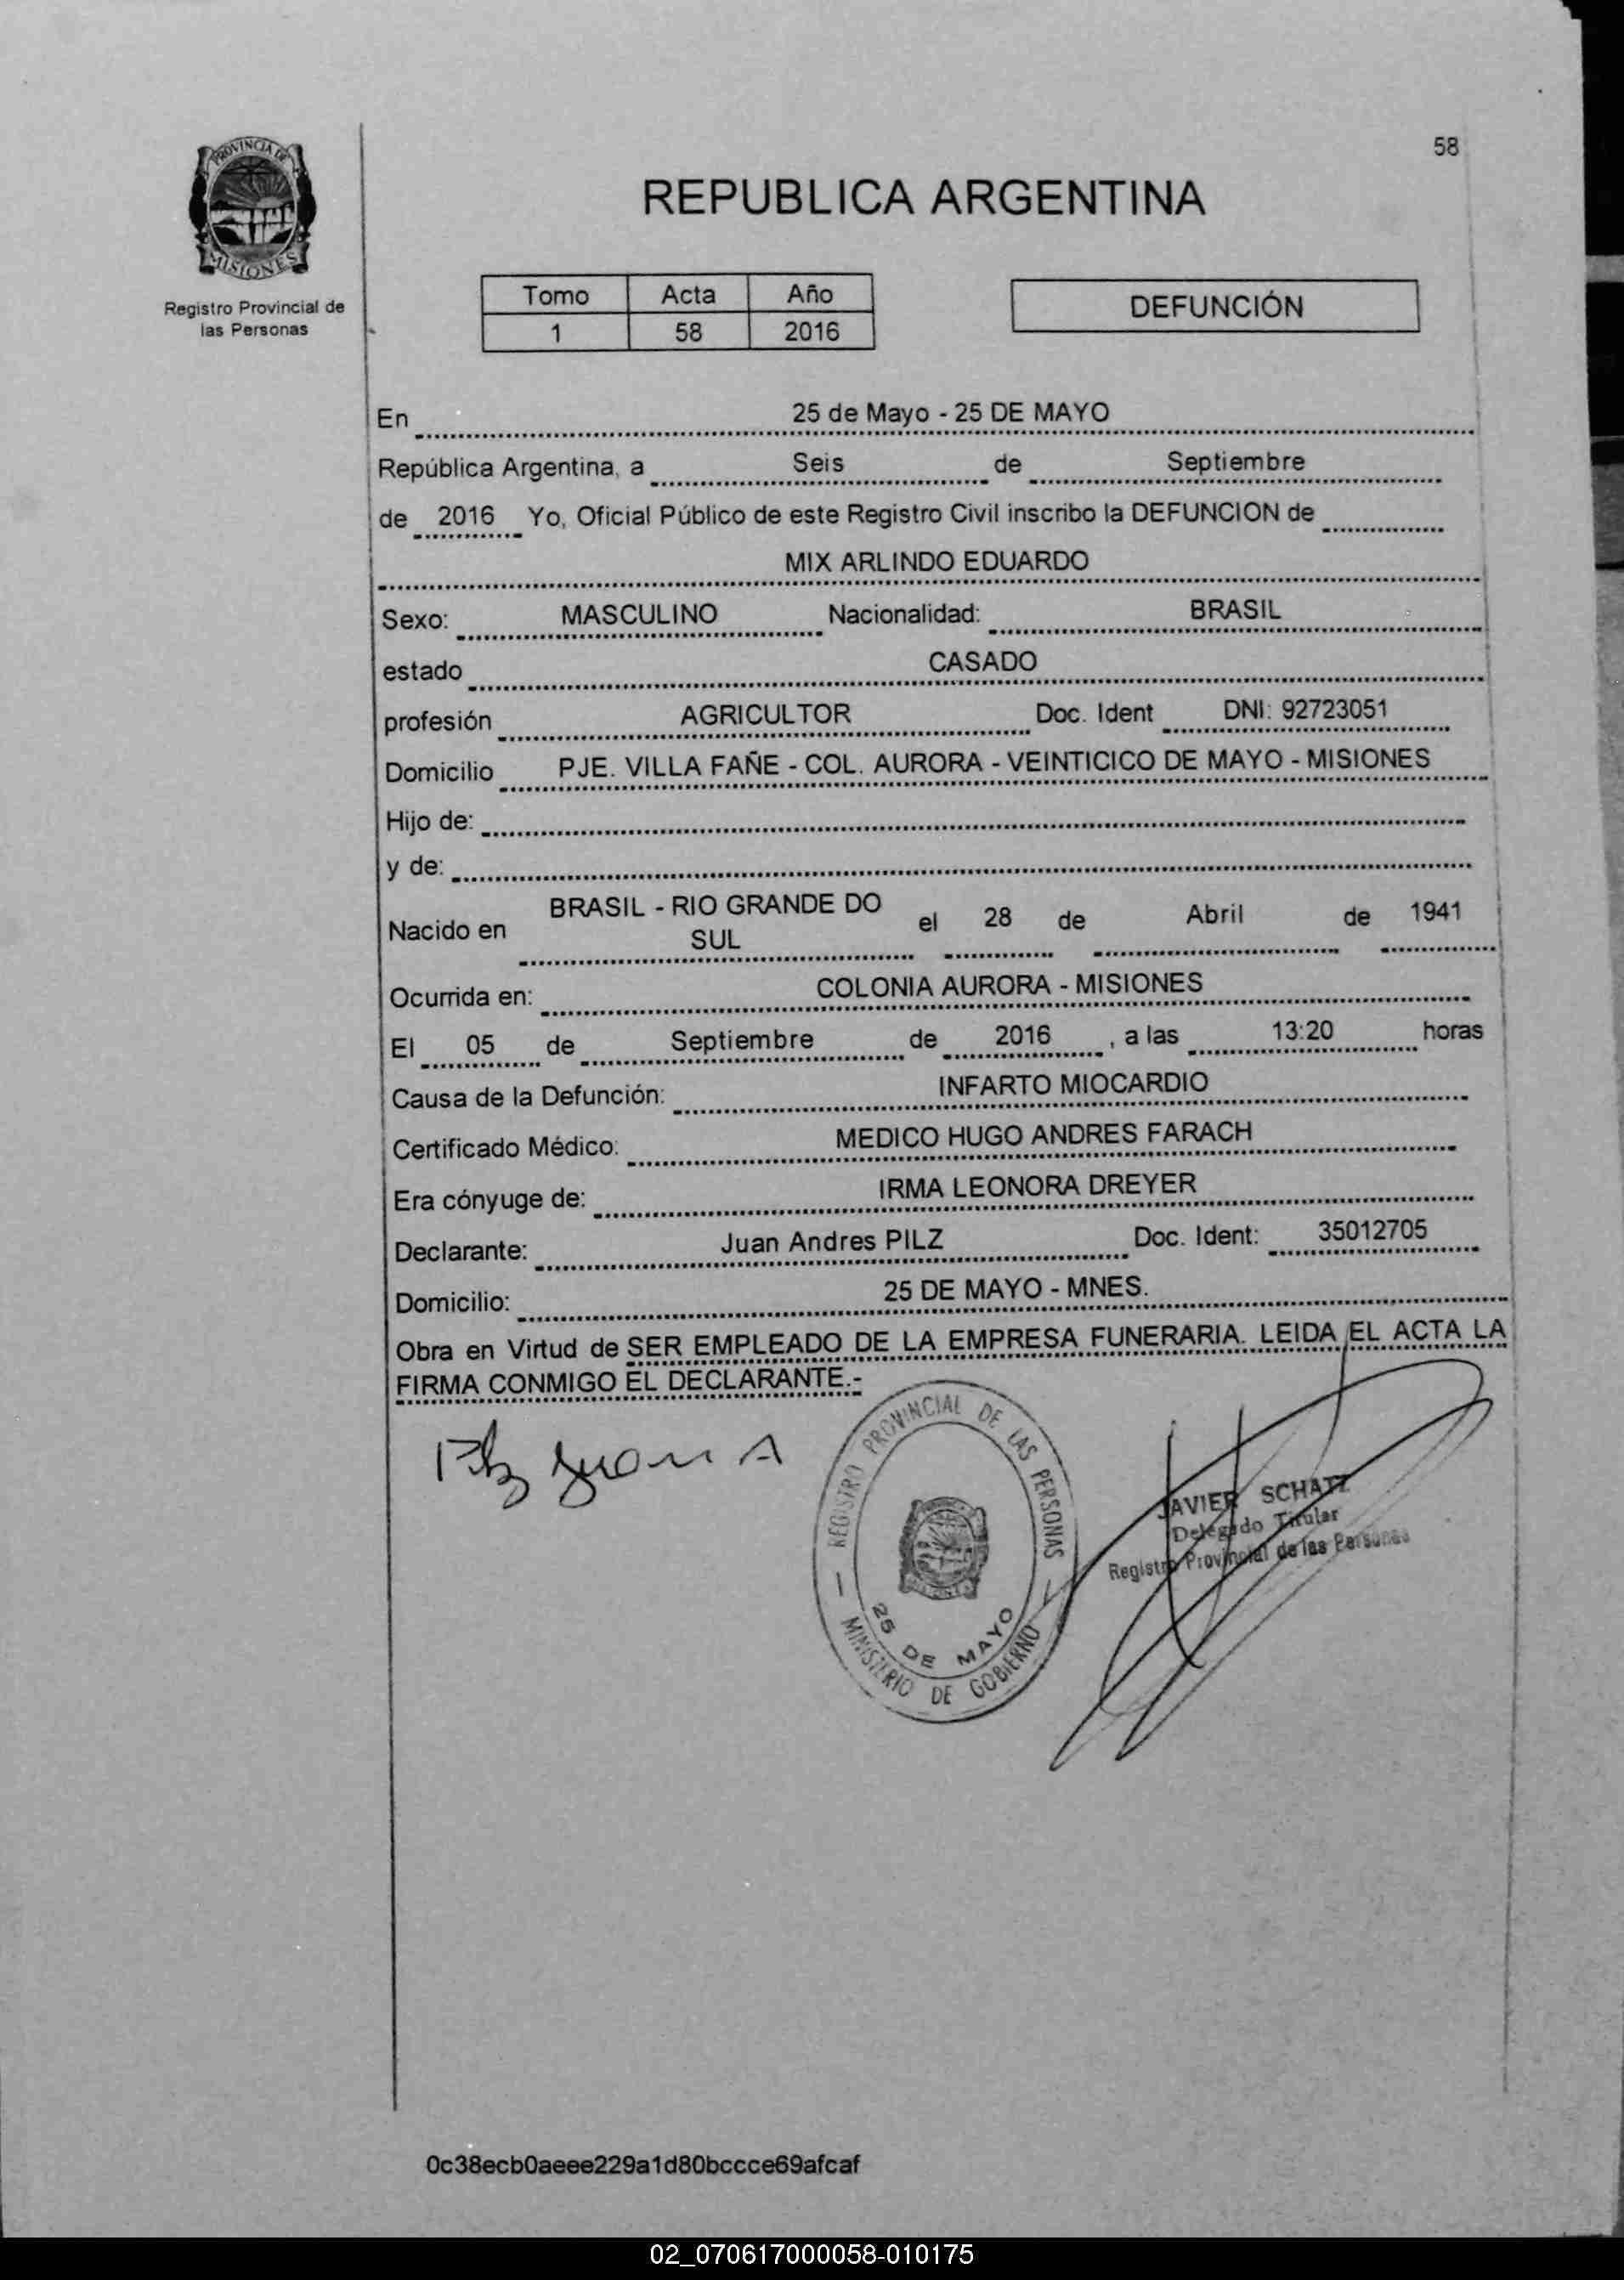 58
PROVINCIA DE
MISIONES
Registro Provincial de
las Personas
REPUBLICA ARGENTINA
Tomo Acta Año
1 58 2016
DEFUNCIÓN
En 25 de Mayo - 25 DE MAYO
República Argentina, a Seis de Septiembre
de 2016 Yo, Oficial Público de este Registro Civil inscribo la DEFUNCION de
MIX ARLINDO EDUARDO
Sexo: MASCULINO Nacionalidad: BRASIL
estado CASADO
profesión AGRICULTOR Doc. Ident DNI: 92723051
Domicilio PJE. VILLA FAÑE - COL. AURORA - VEINTICICO DE MAYO - MISIONES
Hijo de:
y de:
Nacido en BRASIL - RIO GRANDE DO SUL el 28 de Abril de 1941
Ocurrida en: COLONIA AURORA - MISIONES
El 05 de Septiembre de 2016 , a las 13:20 horas
Causa de la Defunción: INFARTO MIOCARDIO
Certificado Médico: MEDICO HUGO ANDRES FARACH
Era cónyuge de: IRMA LEONORA DREYER
Declarante: Juan Andres PILZ Doc. Ident: 35012705
Domicilio: 25 DE MAYO - MNES.
Obra en Virtud de SER EMPLEADO DE LA EMPRESA FUNERARIA. LEIDA EL ACTA LA
FIRMA CONMIGO EL DECLARANTE.-
Pilz Juan A
REGISTRO PROVINCIAL DE LAS PERSONAS
25 DE MAYO
MINISTERIO DE GOBIERNO
JAVIER SCHATZ
Delegado Titular
Registro Provincial de las Personas
0c38ecb0aeee229a1d80bccce69afcaf
02_070617000058-010175